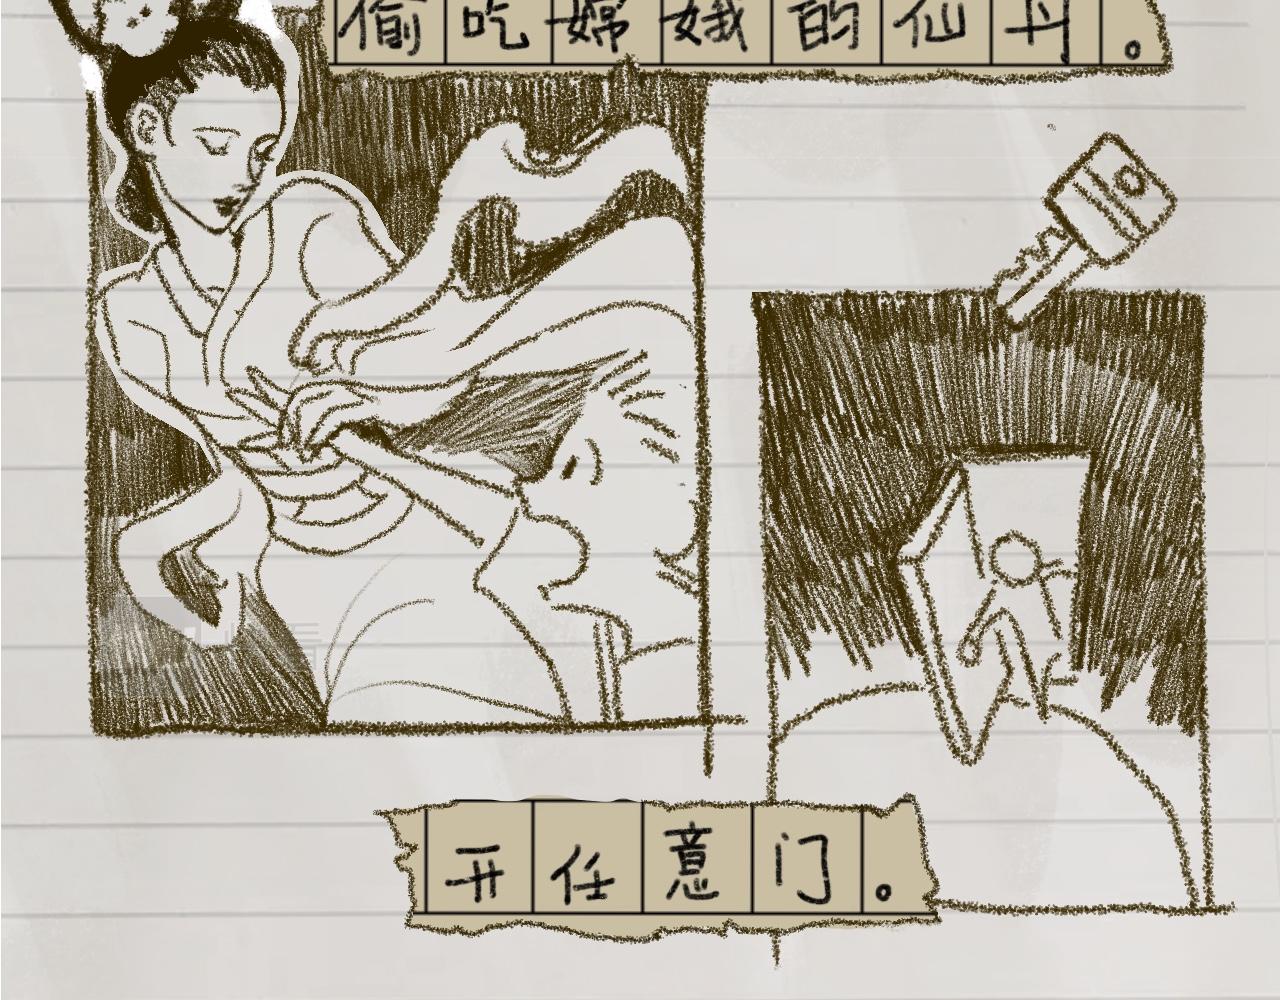 偷吃嫦娥的仙丹。
开任意门。